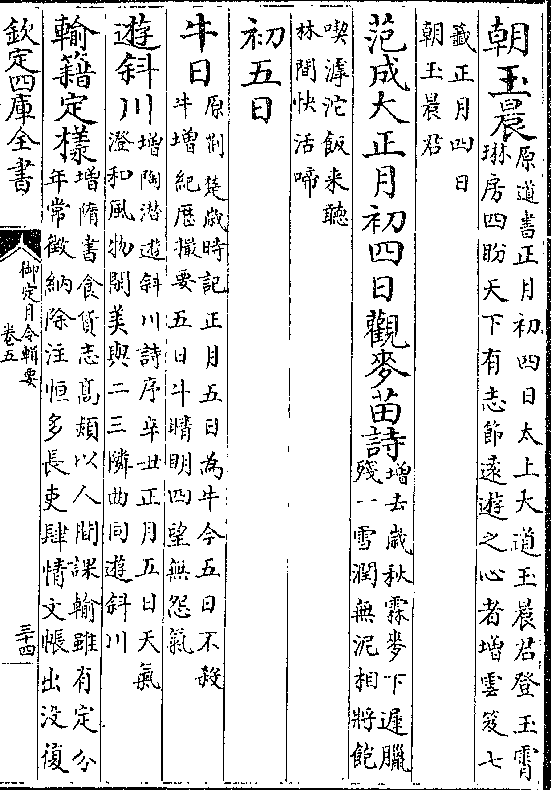 朝玉晨原道書正月初四日太上大道玉晨君登玉霄
琳房四盼天下有志節遠遊之心者增雲笈七
籤正月四日
朝玉晨君
范成大正月初四日觀麥苗詩增去歲秋霖麥下遲臘
殘一雪潤無泥相將飽
喫滹沱飯来聽
林間快活啼
初五日
牛日原荆楚歲時記正月五日為牛今五日不殺
牛增紀歴撮要五日斗晴明四望無怨氣
遊斜川增陶潛遊斜川詩序辛丑正月五日天氣
澄和風物閒美與二三隣曲同遊斜川
輸籍定様增隋書食貨志髙熲以人間課輸雖有定分
年常徴納除注恒多長吏肆情文帳出没復
欽定四庫全書
御定月令輯要
卷五
三十四